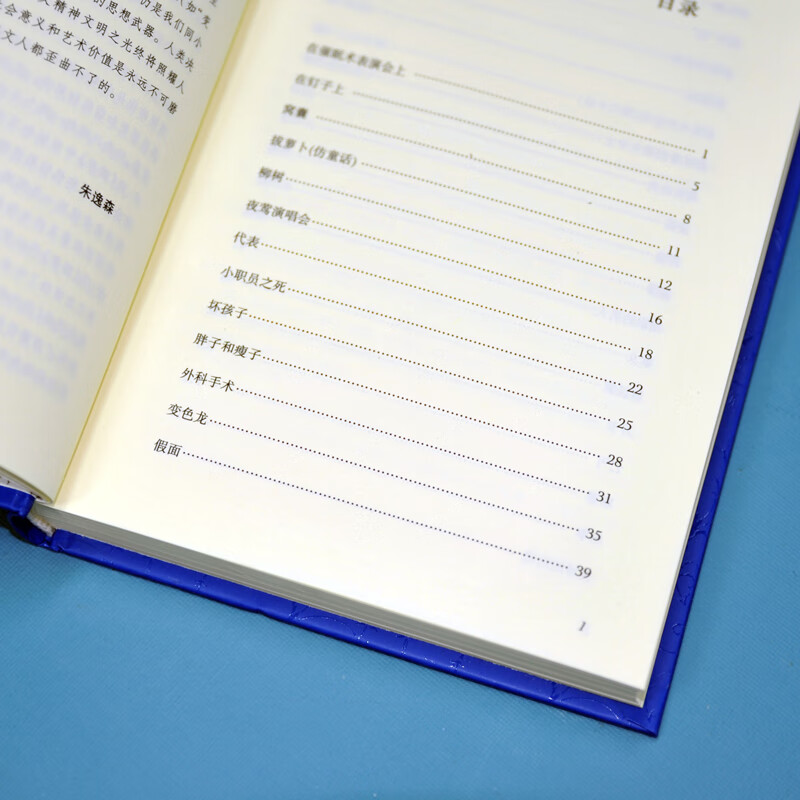 仍是我们同小
的思想武器。人类决
精神文明之光终将照耀人
会意义和艺术价值是永远不可磨
文人都歪曲不了的。
朱逸森
目录
在催眠术表演会上 1
在钉子上 5
窝囊 8
拔萝卜(仿童话) 11
柳树 12
夜莺演唱会 16
代表 18
小职员之死 22
坏孩子 25
胖子和瘦子 28
外科手术 31
变色龙 35
假面 39
1